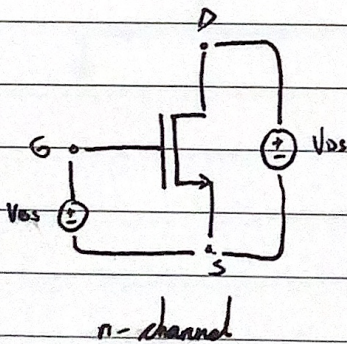 D
G
VDS
VGS
S
n-channel